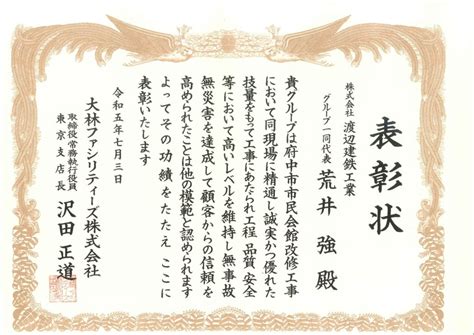 表彰状
株式会社 渡辺建鉄工業
グループ一同代表 荒井 強 殿
貴グループは府中市市民会館改修工事
において同現場に精通し誠実かつ優れた
技量をもって工事にあたられ工程 品質 安全
等において高いレベルを維持し無事故
無災害を達成して顧客からの信頼を
高められたことは他の模範と認められます
よってその功績をたたえ ここに
表彰いたします
令和五年七月三日
大林ファシリティーズ株式会社
取締役 常務執行役員
東京支店長
沢田 正道